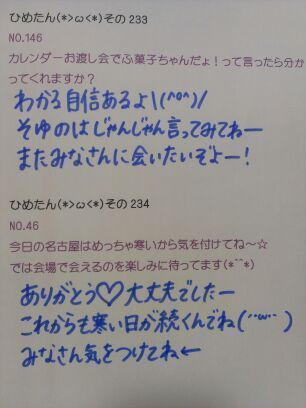 ひめたん(*>ω<*)その233
NO.146
カレンダーお渡し会でふ菓子ちゃんだょ！って言ったら分か
ってくれますか？
わかる自信あるよ\(^o^)/
そゆのはじゃんじゃん言ってみてねー
またみなさんに会いたいぞよー！
ひめたん(*>ω<*)その234
NO.46
今日の名古屋はめっちゃ寒いから気を付けてね～☆
では会場で会えるのを楽しみに待ってます(*^^*)
ありがとう♡大丈夫でしたー
これからも寒い日が続くんでね(¨ω¨)
みなさん気をつけてね←